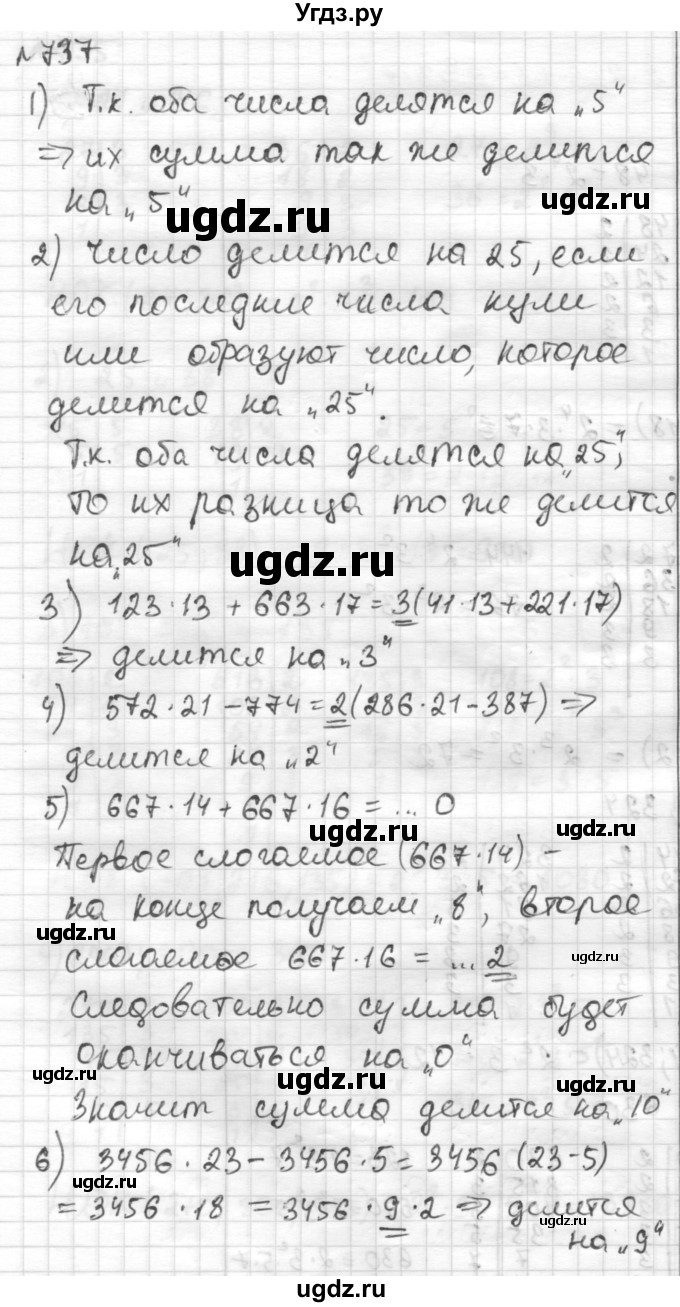 Угдз.ру
№737
1) Т.к. оба числа делятся на „5“
=> их сумма так же делится
на „5“
ugdz.ru
ugdz.ru
2) Число делится на 25, если
его последние числа нули
или образуют число, которое
делится на „25“.
Т.к. оба числа делятся на „25“,
то их разница то же делится
на „25“
ugdz.ru
ugdz.ru
3) 123·13 + 663·17 = 3(41·13+221·17)
=> делится на „3“
4) 572·21-774=2(286·21-387) =>
делится на „2“
5) 667·14+667·16 = ... 0
ugdz.ru
ugdz.ru
Первое слогаемое (667·14) -
на конце получаем „8“, второе
ugdz.ru
слогаемое 667·16 = ... 2
ugdz.ru
Следовательно сумма будет
оканчиваться на „0“
ugdz.ru
ugdz.ru
ugdz.ru
Значит сумма делится на „10“
6) 3456·23-3456·5=3456(23-5)
ugdz.ru
= 3456·18 = 3456·9·2 => делится
ugdz.ru
на „9“
ugdz.ru